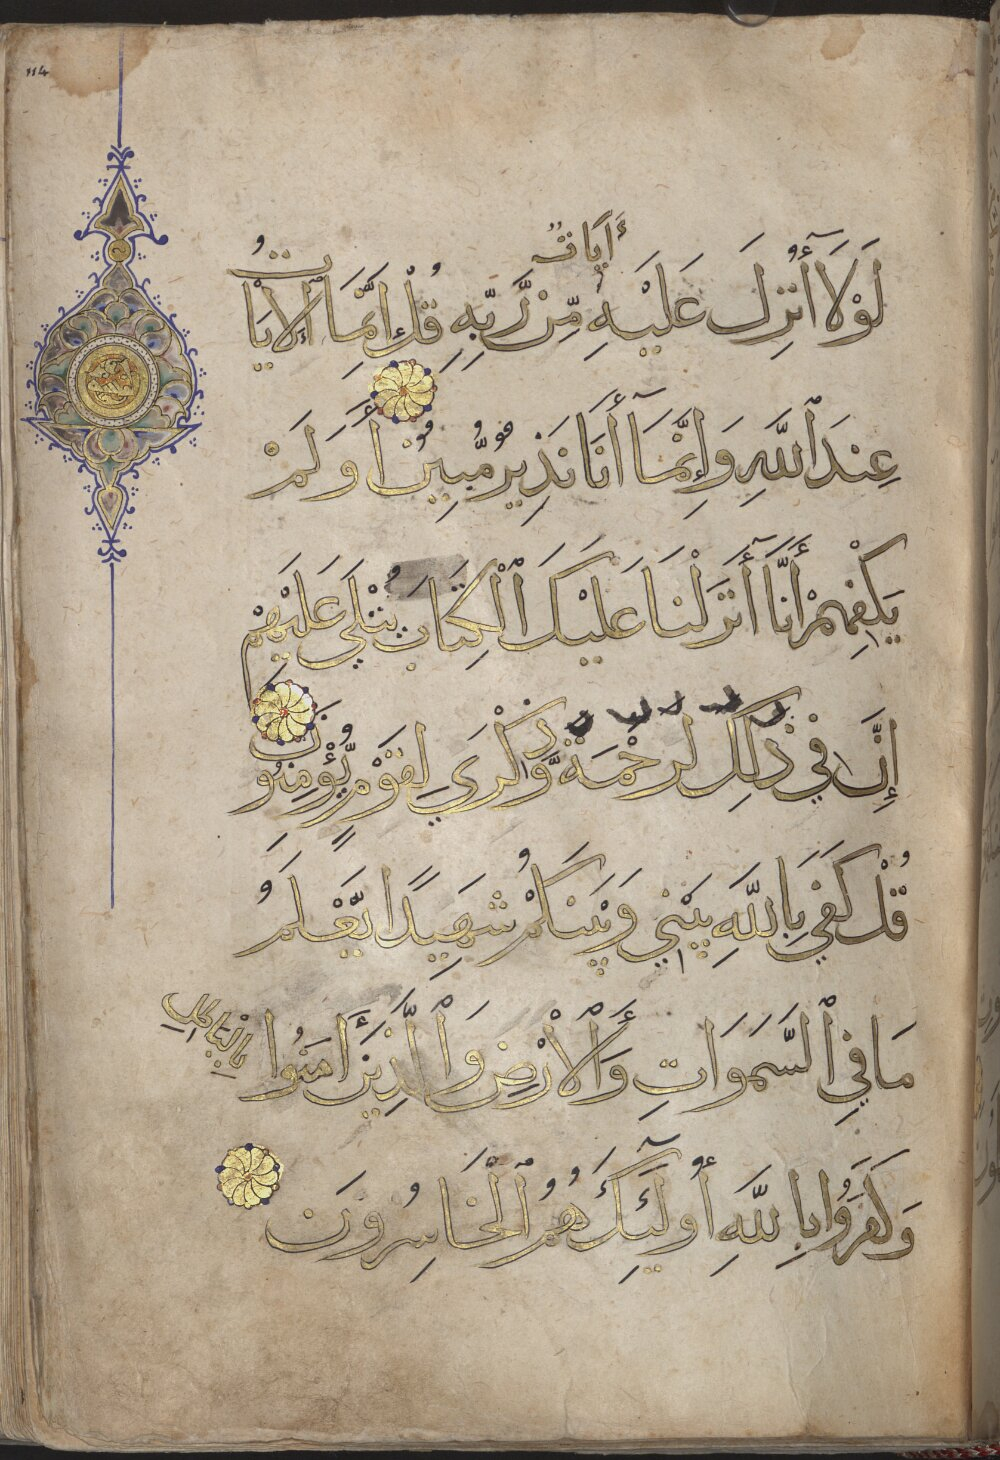 114
ءَايَاتٌ
لَوْلَا أُنْزِلَ عَلَيْهِ مِّن رَّبِّهِ قُلْ إِنَّمَا ٱلْآيَاتُ
عِندَ ٱللَّهِ وَإِنَّمَآ أَنَا نَذِيرٌ مُّبِينٌ أَوَلَمْ
يَكْفِهِمْ أَنَّآ أَنزَلْنَا عَلَيْكَ ٱلْكِتَابَ يُتْلَى عَلَيْهِمْ
إِنَّ فِي ذَلِكَ لَرَحْمَةً وَّذِكْرَى لِقَوْمٍ يُّؤْمِنُونَ
قُلْ كَفَى بِٱللَّهِ بَيْنِي وَبَيْنَكُمْ شَهِيدًا يَّعْلَمُ
مَا فِي ٱلسَّمَوَاتِ وَٱلْأَرْضِ وَٱلَّذِينَ ءَامَنُوا
بِٱلْبَاطِلِ
وَكَفَرُوا بِٱللَّهِ أُولَٰٓئِكَ هُمُ ٱلْخَاسِرُونَ